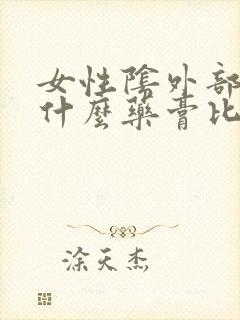 女性陰外部
什麼藥膏比
涂天杰